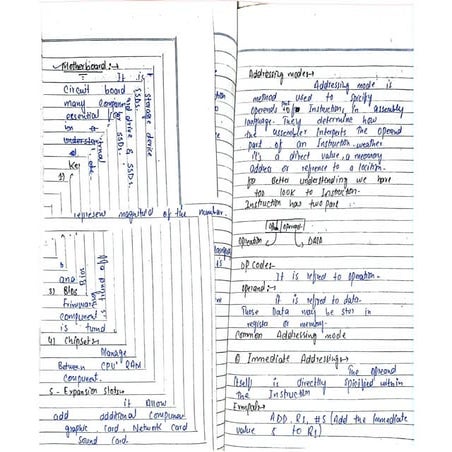 Motherboard:→
It is
Circuit board
many component
essential for
on
understand
Key
storage device
drive & SSDs.
SSDs.
represent magnitude of the number.
and
3) Bios
firmware
component
is turned
4) Chipset→
Manage
Between CPU RAM
Component.
5 - Expansion Slots→
it Allow
add additional Componen
graphic Card, Network Card
Sound Card.
Addressing modes→
Addressing mode is
method used to specify
operands of Instruction, in assembly
language. They determine how
the assembler Interprets the operand
part of an Instruction. weather
it's a direct value, a memory
address or reference to a location.
for Better understanding we have
too look to Instruction.
Instruction has two part
op operand
operation DATA
OP Code-
It is refred to operation.
operand:→
it is refred to data.
These Data may be store in
register or memory.
Common Addressing mode
① Immediate Addressing→
The operand
itself is directly specified within
the Instruction
Example→
ADD R1, #5 (Add the immediate
value 5 to R1)